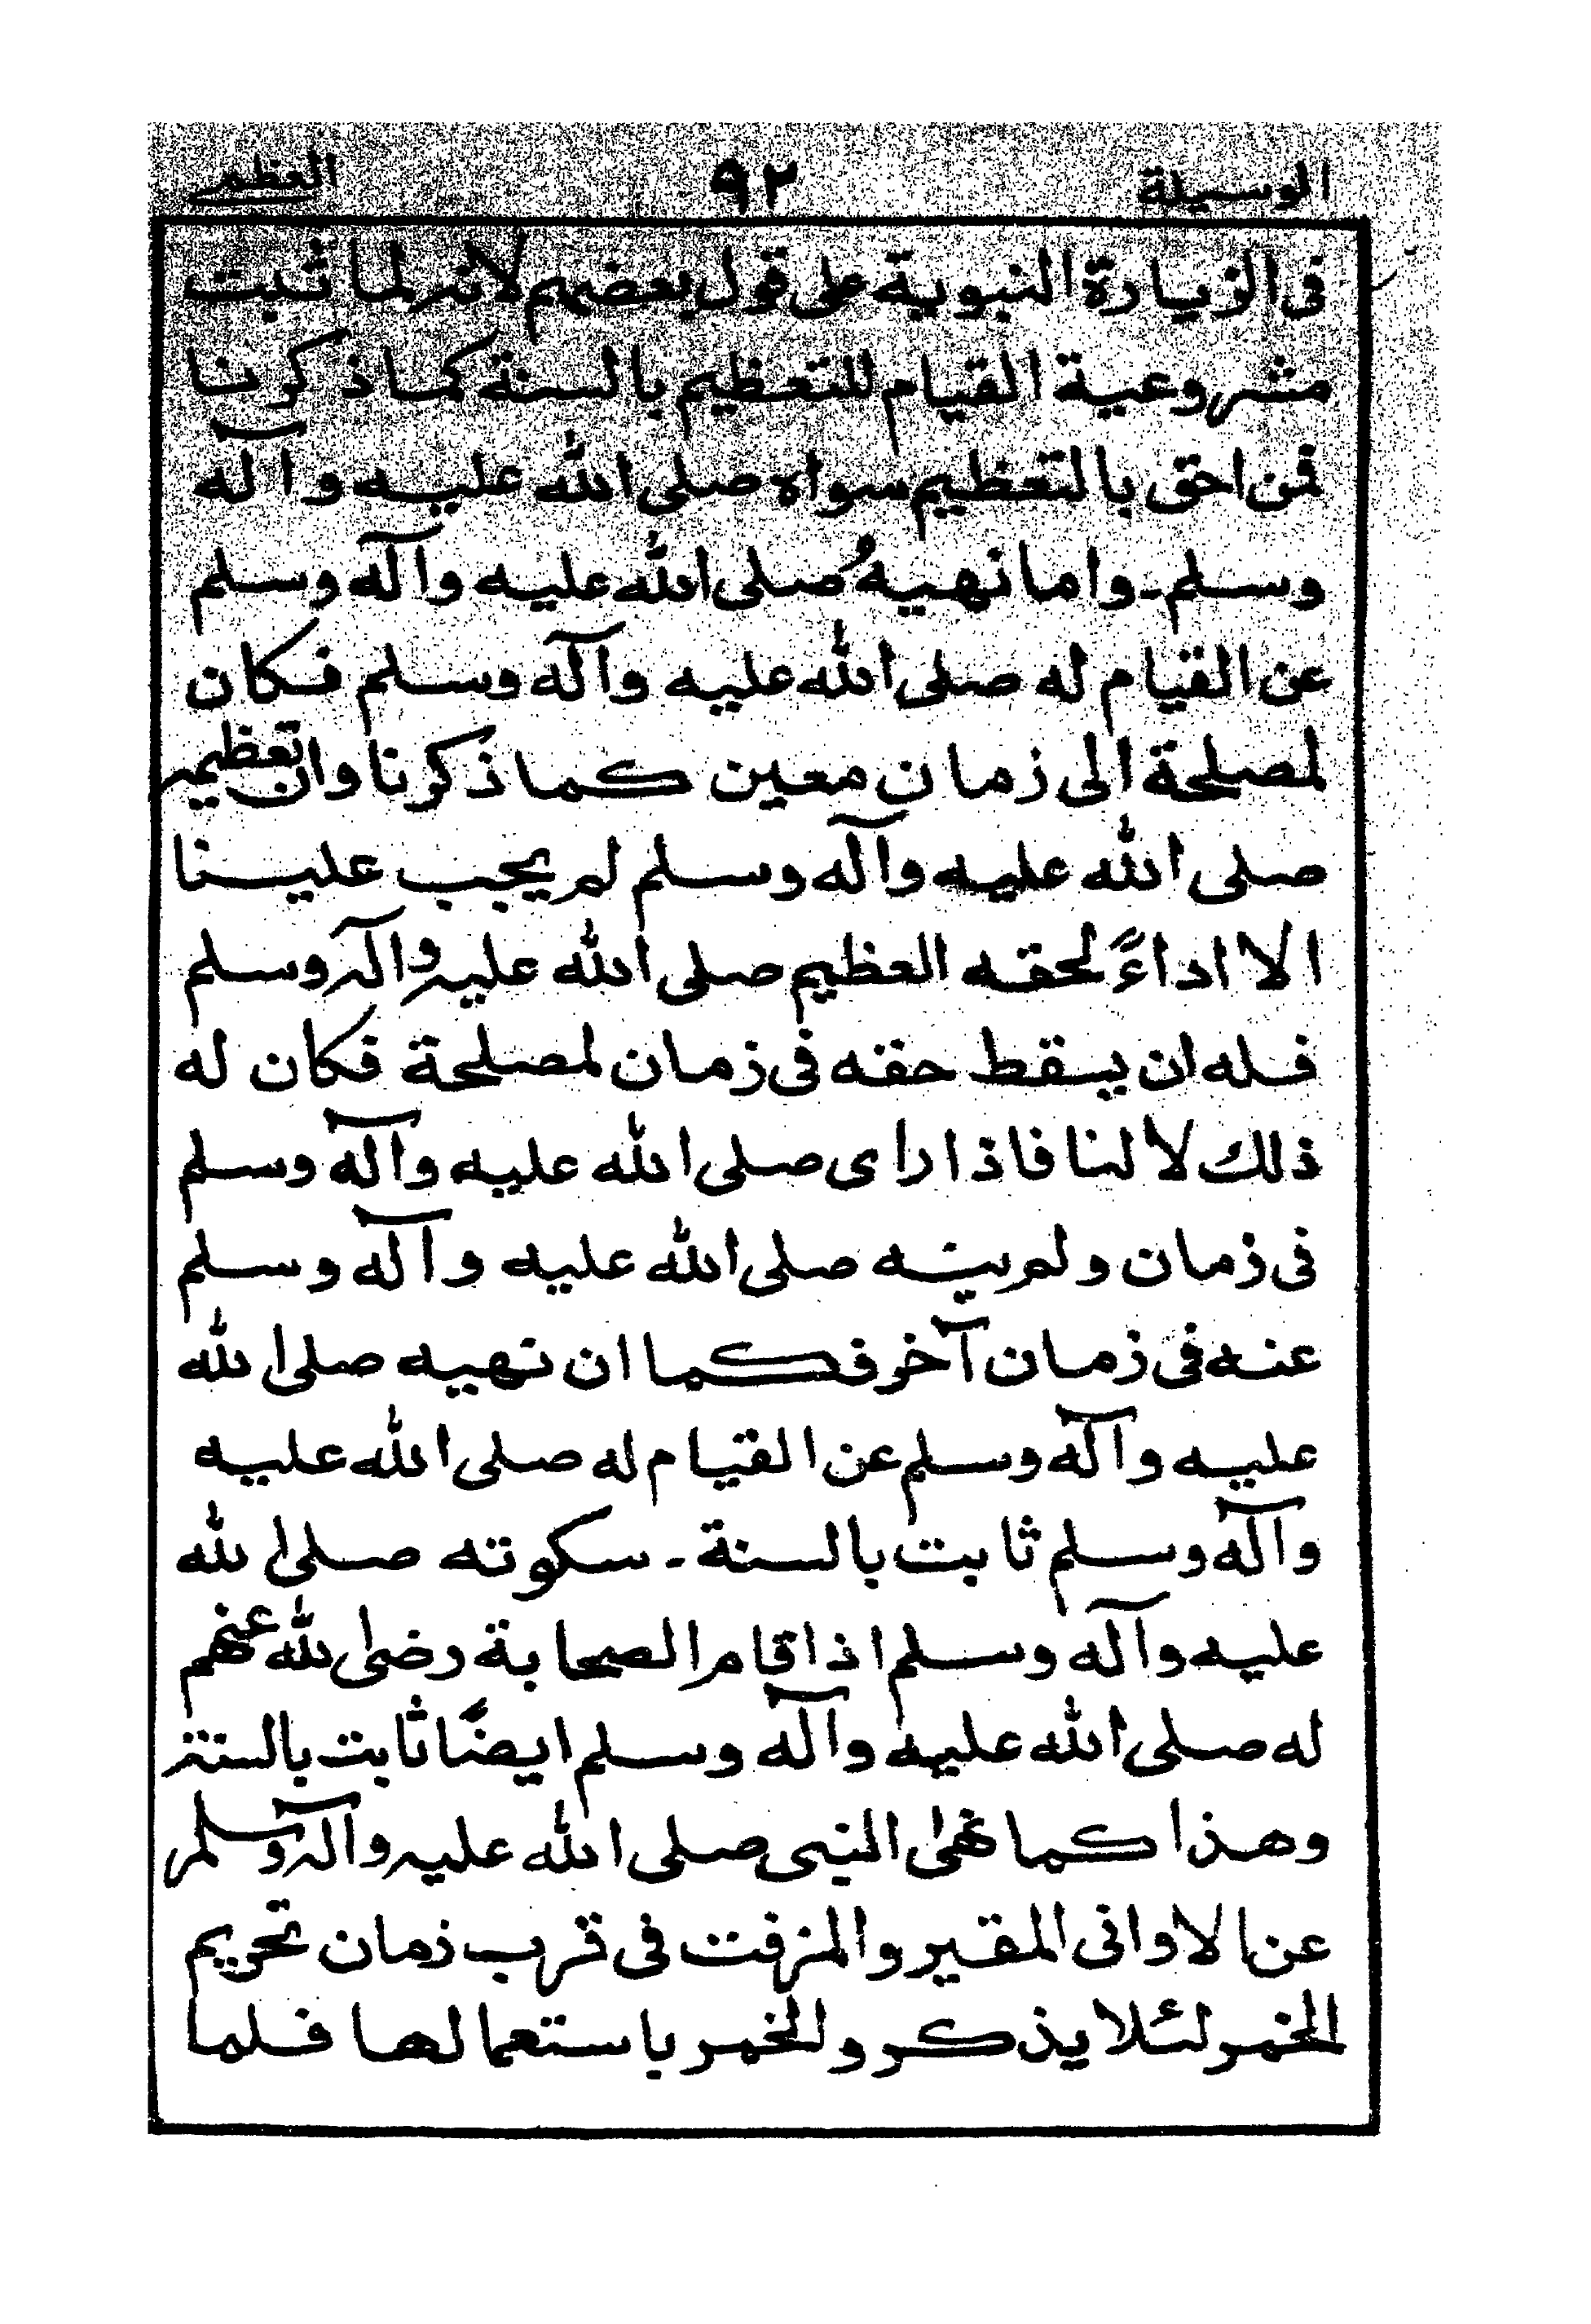 الوسيلة ٩٢ العظمى
فى الزيارة النبوية على قول بعضهم لانه لما ثبت
مشروعية القيام للتعظيم بالسنة كما ذكرنا
فمن احق بالتعظيم سواه صلى الله عليه وآله
وسلم ـ واما نهيهُ صلى الله عليه وآله وسلم
عن القيام له صلى الله عليه وآله وسلم فكان
لمصلحة الى زمان معين كما ذكرنا وان تعظيمه
صلى الله عليه وآله وسلم لم يجب علينا
الا اداءً لحقه العظيم صلى الله عليه وآله وسلم
فله ان يسقط حقه فى زمان لمصلحة فكان له
ذلك لا لنا فاذا راى صلى الله عليه وآله وسلم
فى زمان ولم ينه صلى الله عليه وآله وسلم
عنه فى زمان آخر فكما ان نهيه صلى الله
عليه وآله وسلم عن القيام له صلى الله عليه
وآله وسلم ثابت بالسنة ـ سكوته صلى الله
عليه وآله وسلم اذا قام الصحابة رضى الله عنهم
له صلى الله عليه وآله وسلم ايضًا ثابت بالسنة
وهذا كما نهى النبى صلى الله عليه وآله وسلم
عن الاوانى المقير والمزفت فى قرب زمان تحريم
الخمر لئلا يذكروا الخمر باستعمالها فلما